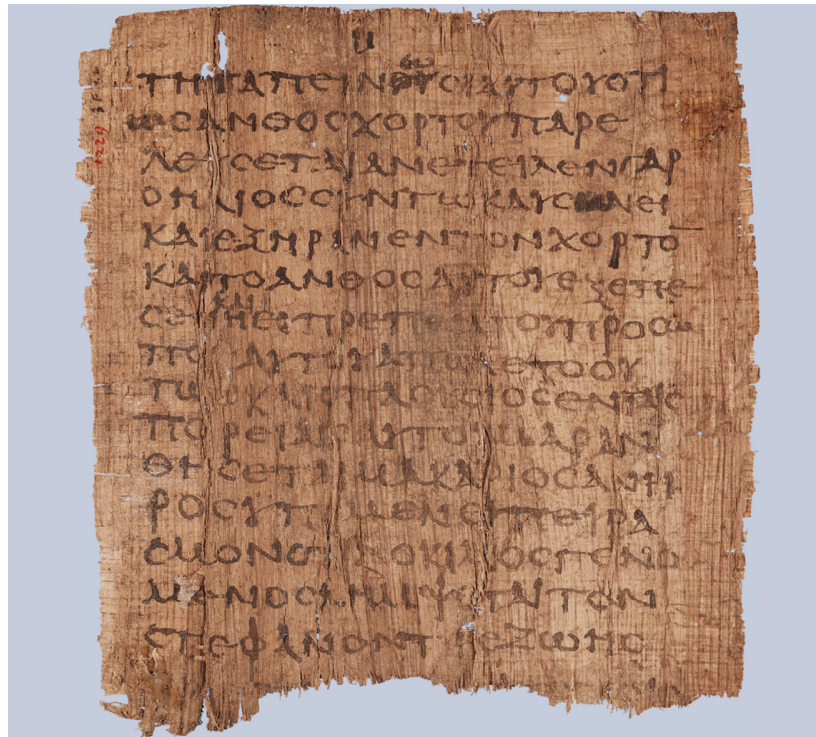 ΤΗΤΑΠΕΙΝΩϹΙΑΥΤΟΥΟΤΙ
ΩϹΑΝΘΟϹΧΟΡΤΟΥΠΑΡΕ
ΛΕΥϹΕΤΑΙΑΝΕΤΕΙΛΕΝΓΑΡ
ΟΗΛΙΟϹϹΥΝΤΩΚΑΥϹΩΝΕΙ
ΚΑΙΕΞΗΡΑΝΕΝΤΟΝΧΟΡΤΟ̅
ΚΑΙΤΟΑΝΘΟϹΑΥΤΟΥΕΞΕΠΕ
ϹΕΚΑΙΗΕΥΠΡΕΠΕΙΑΤΟΥΠΡΟϹΩ
ΠΟΥΑΥΤΟΥΑΠΩΛΕΤΟΟΥ
ΤΩϹΚΑΙΟΠΛΟΥϹΙΟϹΕΝΤΑΙϹ
ΠΟΡΕΙΑΙϹΑΥΤΟΥΜΑΡΑΝ
ΘΗϹΕΤΑΙΜΑΚΑΡΙΟϹΑΝΗ
ΡΟϹΥΠΟΜΕΝΕΙΠΕΙΡΑ
ϹΜΟΝΟΤΙΔΟΚΙΜΟϹΓΕΝΟ
ΜΑΝΟϹΛΗΜΨΕΤΑΙΤΟΝ
ϹΤΕΦΑΝΟΝΤΗϹΖΩΗϹ
1229